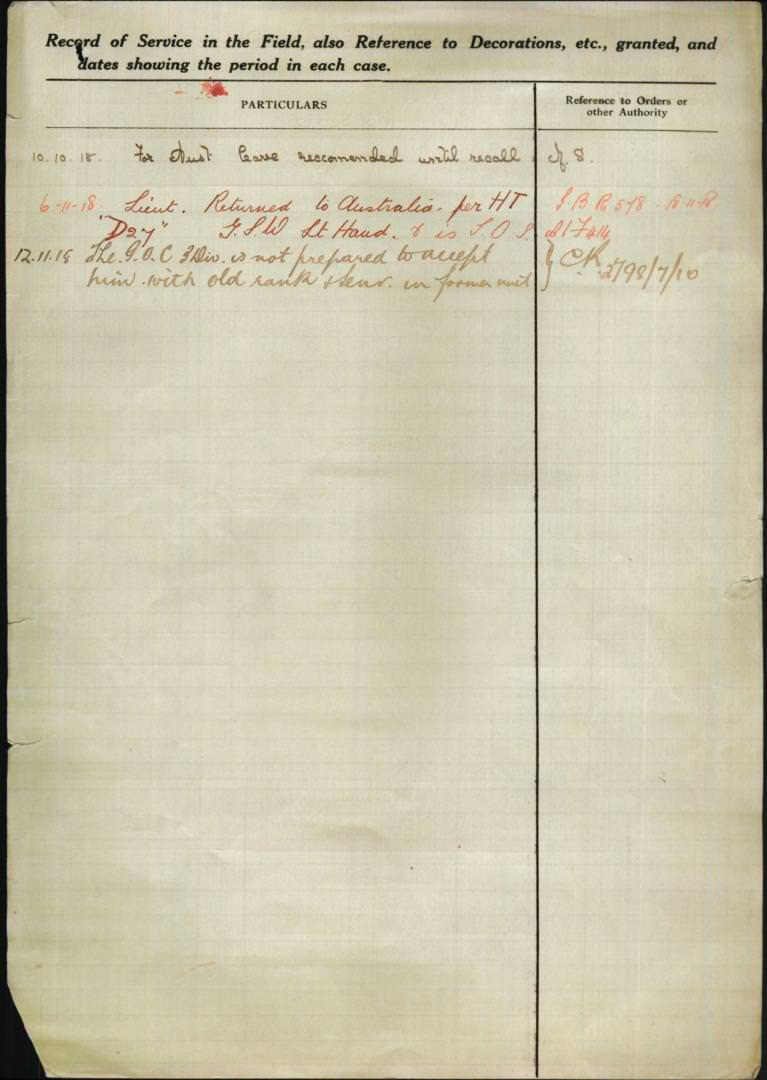 Record of Service in the Field, also Reference to Decorations, etc., granted, and
dates showing the period in each case.
PARTICULARS
Reference to Orders or
other Authority
10.10.18. For Aust leave reccomended until recall
6-11-18. Lieut. Returned to Australia. per HT
"D27" G.S.W Lt Hand. & is S.O.S.
12.11.18 The G.O.C 3 Div. is not prepared to accept
him with old rank & Senr. in former unit